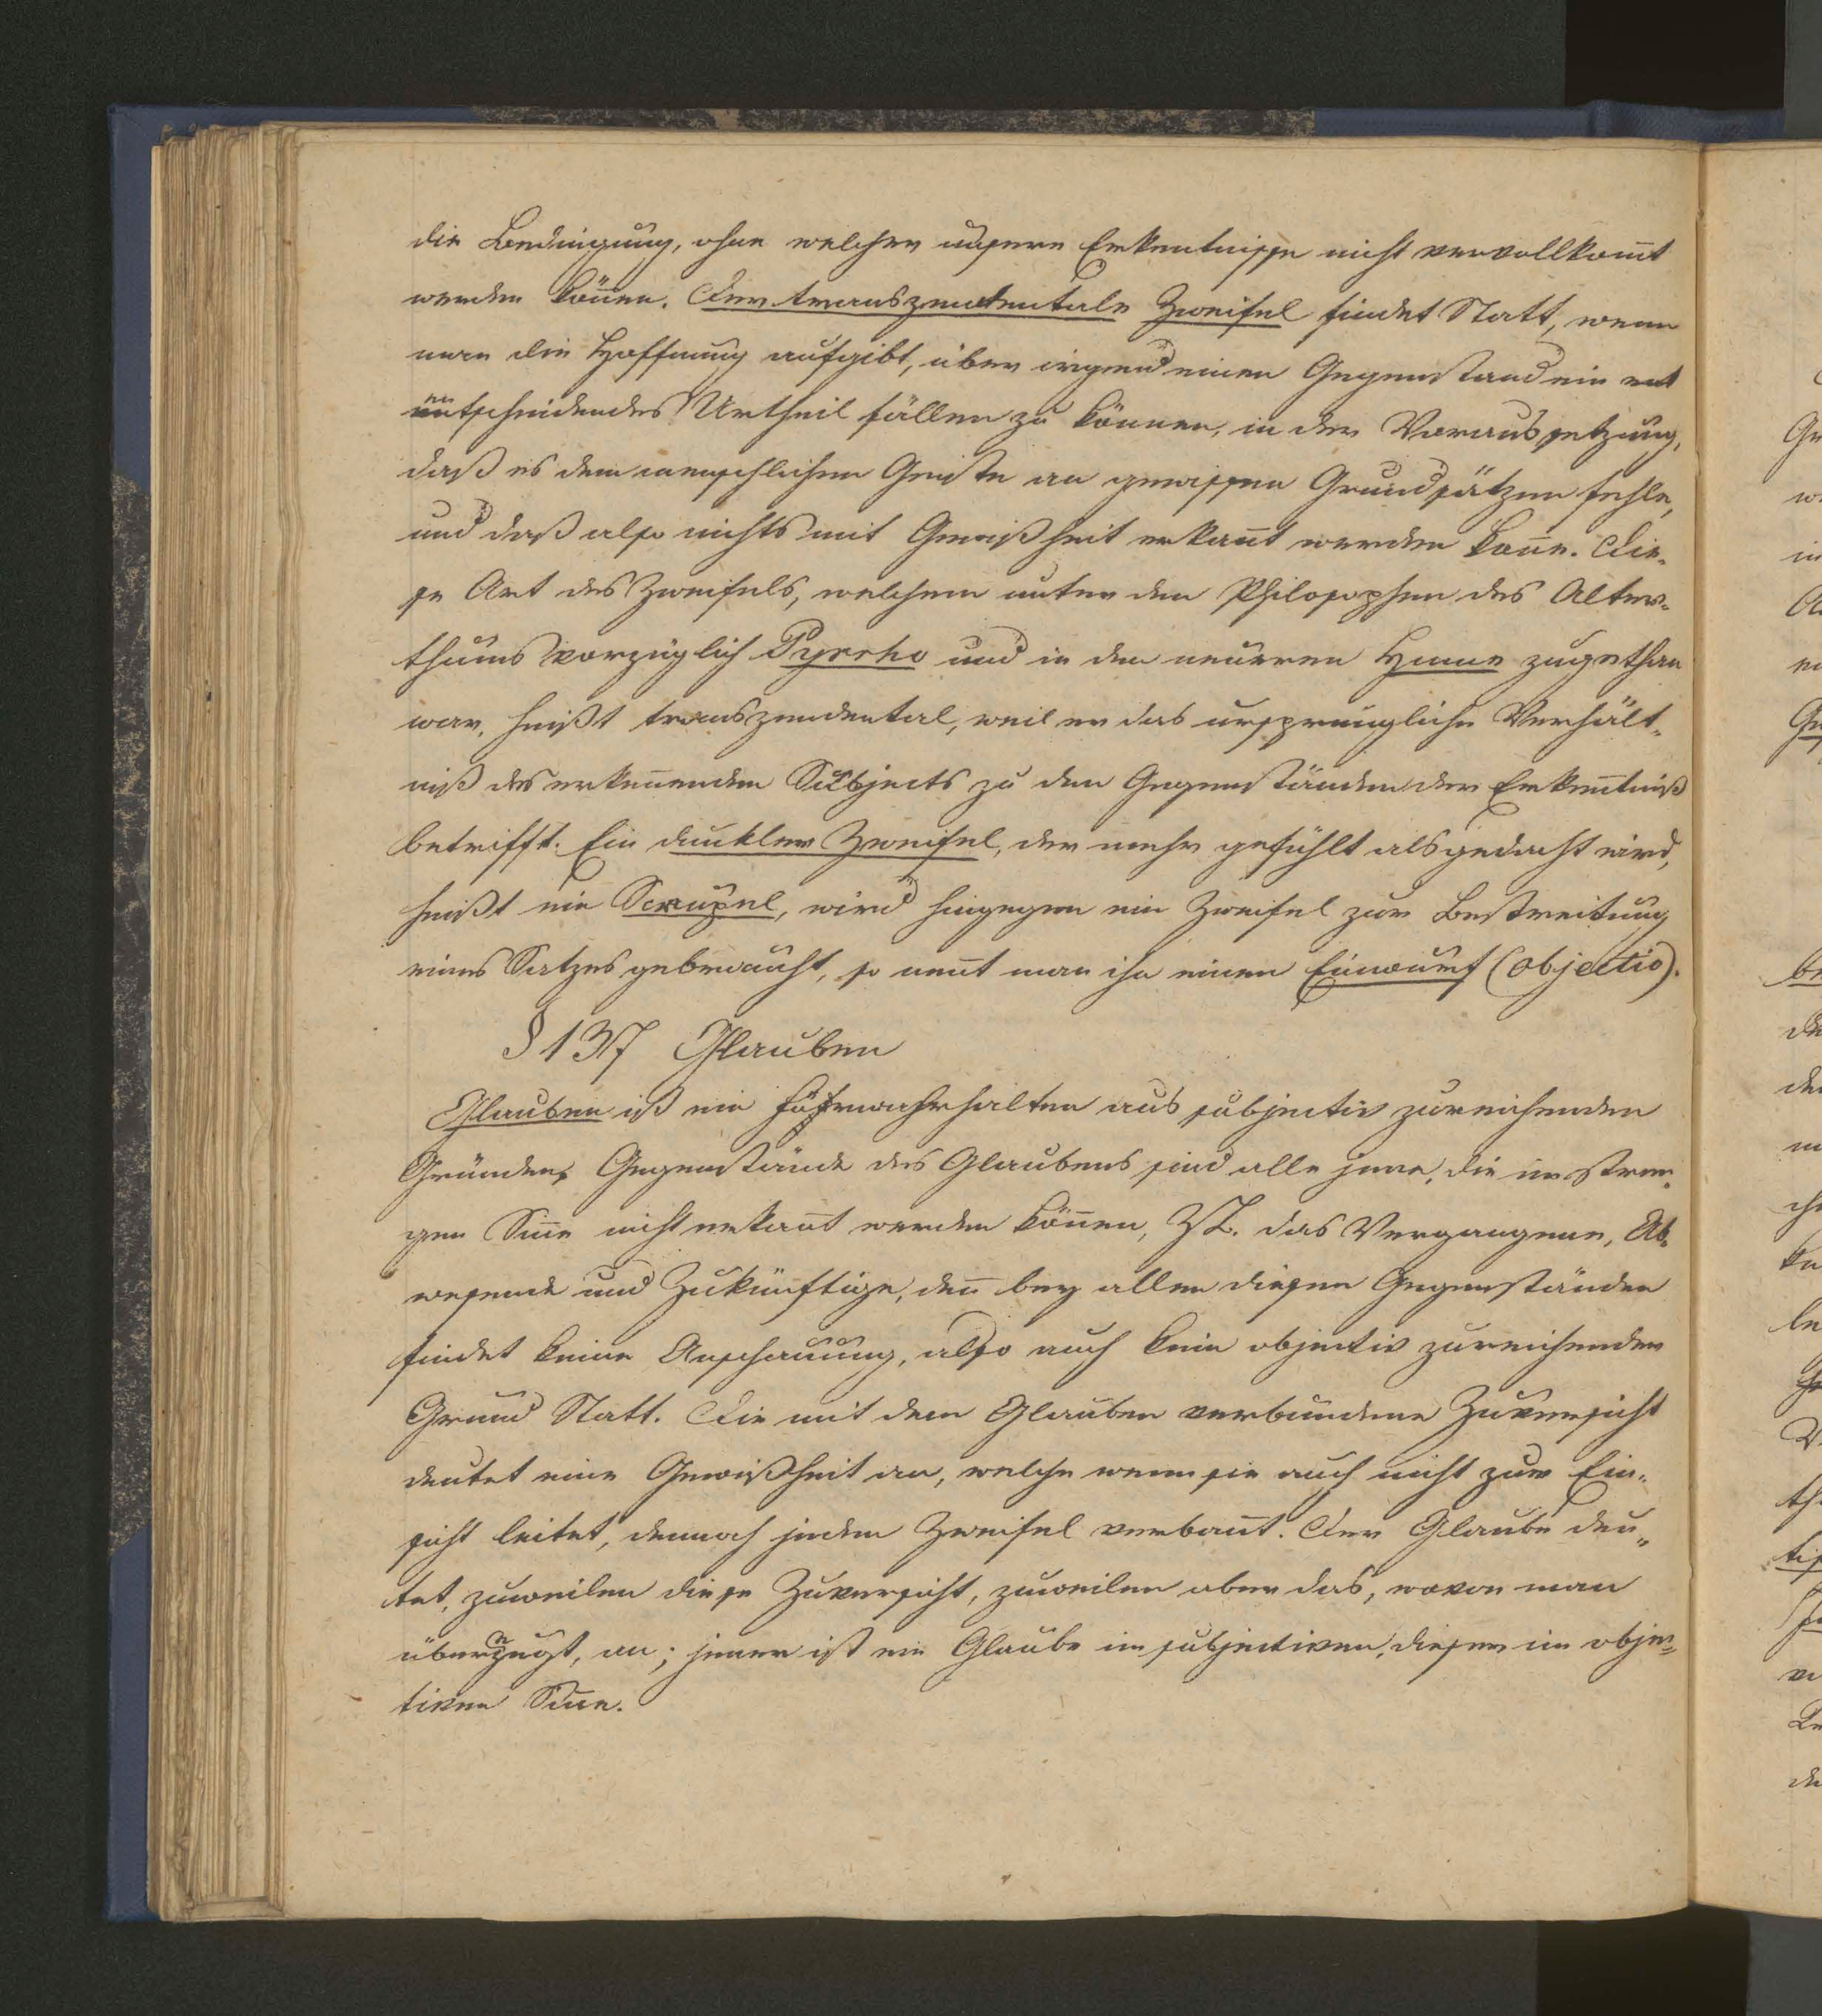 die Bedingung, ohne welcher unsere Erkentnisse nicht vervollkom̅t
werden kön̅en. Der transzendentale Zweifel findet Statt, wenn
man die Hoffnung aufgibt, über irgend einen Gegenstand ein ent
entscheidendes Urtheil fällen zu können, in der Voraussetzung,
daß es dem menschlichen Geiste an gewissen Grundsätzen fehle,
und daß also nichts mit Gewißheit erkan̅t werden kön̅e. Die-
se Art des Zweifels, welchem unter den Philosophen des Alter-
thums vorzüglich Pyrrho und in den neueren Hume zugethan
war, heißt transzendental, weil er das ursprüngliche Verhält-
niß des erken̅enden Subjects zu den Gegenständen der Erken̅tniß
betrifft. Ein dunkler Zweifel, der mehr gefühlt als gedacht wird,
heißt ein Scrupel, wird hingegen ein Zweifel zur Bestreitung
eines Satzes gebraucht, so nen̅t man ihn einen Einwurf (objectio).
§ 137 Glauben
Glauben ist ein Fürwahrhalten aus subjectiv zureichenden
Gründen, Gegenstände des Glaubens sind alle jene, die im stren-
gen Sin̅e nicht erkan̅t werden kön̅en, Z.B. das Vergangene, Ab-
wesende und Zukünftige, den̅ bey allen diesen Gegenständen
findet keine Anschauung, also auch kein objectiv zureichender
Grund Statt. Die mit dem Glauben verbundene Zuversicht
deutet eine Gewißheit an, welche wenn sie auch nicht zur Ein-
sicht leitet, dennoch jeden Zweifel verban̅t. Der Glaube deu-
tet, zuweilen diese Zuversicht, zuweilen aber das, wovon man
überzeugt, an; jener ist ein Glaube im subjectiven, dieser im objec-
tiven Sinne.